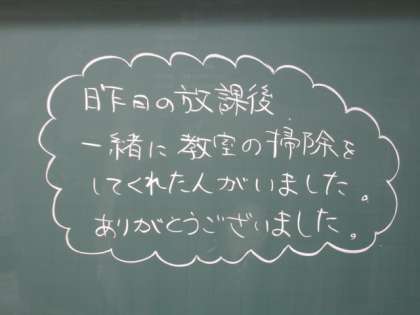 昨日の放課後
一緒に教室の掃除を
してくれた人がいました。
ありがとうございました。